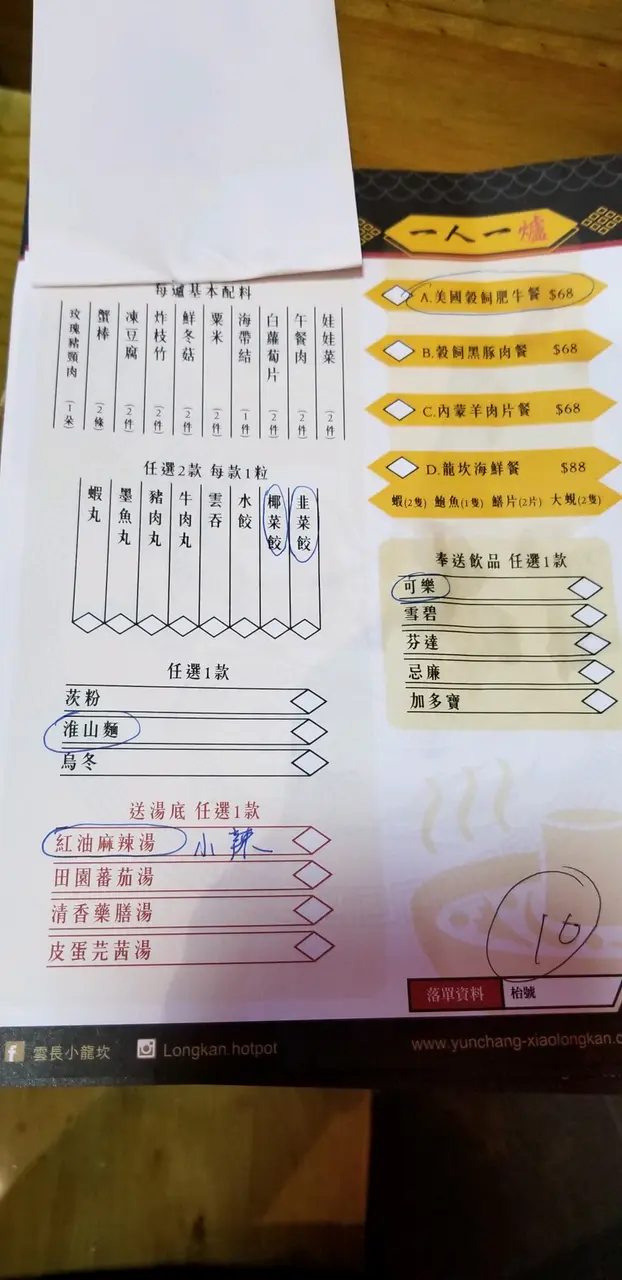 一人一爐
A.美國穀飼肥牛餐 $68
B.穀飼黑豚肉餐 $68
C.內蒙羊肉片餐 $68
D.龍坎海鮮餐 $88
蝦(2隻) 鮑魚(1隻) 鱔片(2片) 大蜆(2隻)
奉送飲品 任選1款
可樂
雪碧
芬達
忌廉
加多寶
每爐基本配料
娃娃菜 (2件)
午餐肉 (2件)
白蘿蔔片 (2件)
海帶結 (1件)
粟米 (2件)
鮮冬菇 (2件)
炸枝竹 (2件)
凍豆腐 (2件)
蟹棒 (2條)
玫瑰豬頸肉 (1朵)
任選2款 每款1粒
韭菜餃
椰菜餃
水餃
雲吞
牛肉丸
豬肉丸
墨魚丸
蝦丸
任選1款
茨粉
淮山麵
烏冬
送湯底 任選1款
紅油麻辣湯 小辣
田園蕃茄湯
清香藥膳湯
皮蛋芫茜湯
10
落單資料 枱號
雲長小龍坎 Longkan.hotpot www.yunchang-xiaolongkan.c